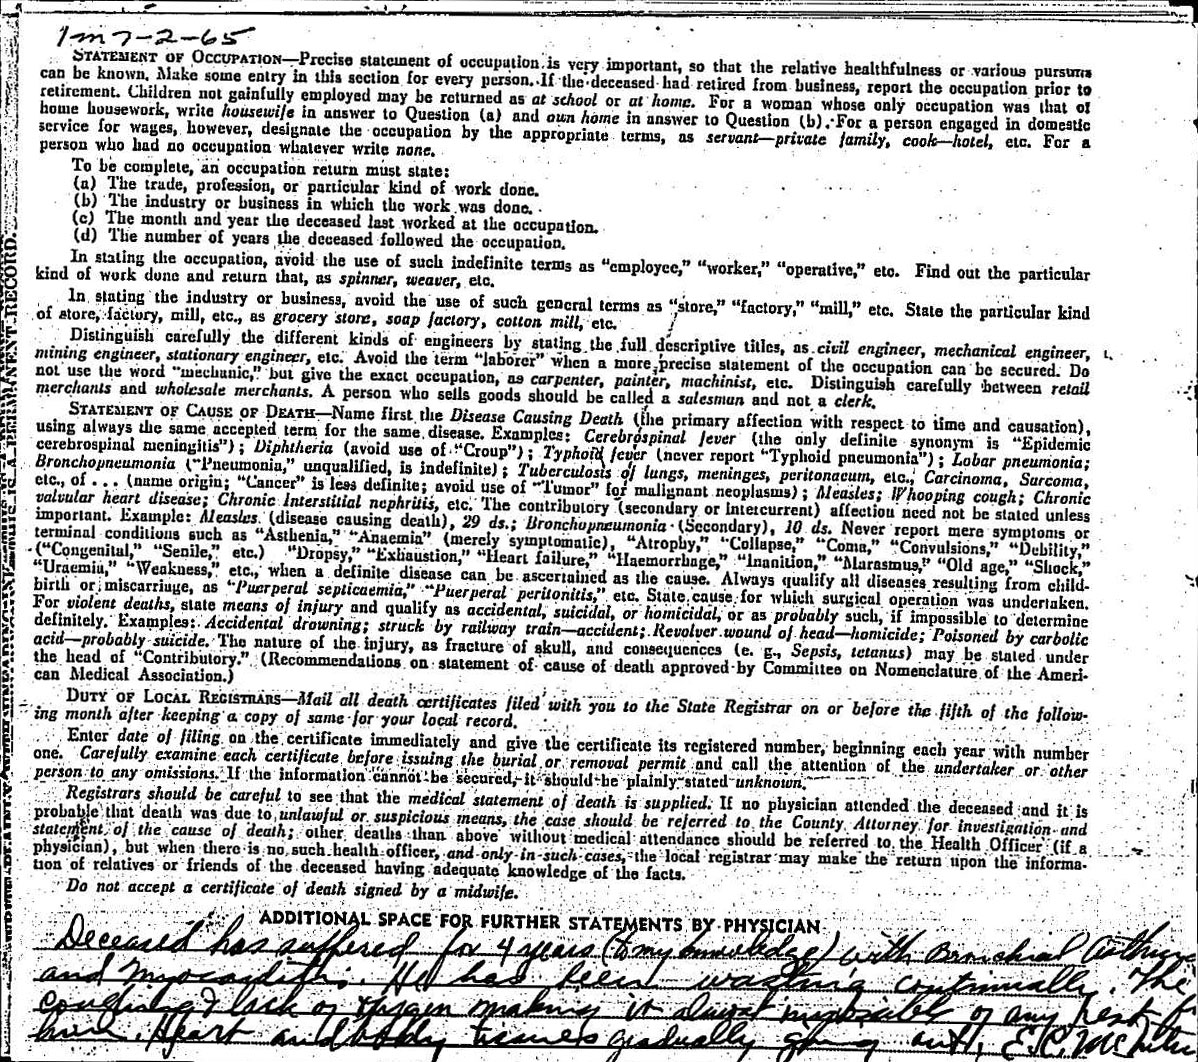 1m 7-2-65
STATEMENT OF OCCUPATION—Precise statement of occupation is very important, so that the relative healthfulness or various pursuits
can be known. Make some entry in this section for every person. If the deceased had retired from business, report the occupation prior to
retirement. Children not gainfully employed may be returned as at school or at home. For a woman whose only occupation was that of
home housework, write housewife in answer to Question (a) and own home in answer to Question (b). For a person engaged in domestic
service for wages, however, designate the occupation by the appropriate terms, as servant—private family, cook—hotel, etc. For a
person who had no occupation whatever write none.
To be complete, an occupation return must state:
(a) The trade, profession, or particular kind of work done.
(b) The industry or business in which the work was done.
(c) The month and year the deceased last worked at the occupation.
(d) The number of years the deceased followed the occupation.
In stating the occupation, avoid the use of such indefinite terms as "employee," "worker," "operative," etc. Find out the particular
kind of work done and return that, as spinner, weaver, etc.
In stating the industry or business, avoid the use of such general terms as "store," "factory," "mill," etc. State the particular kind
of store, factory, mill, etc., as grocery store, soap factory, cotton mill, etc.
Distinguish carefully the different kinds of engineers by stating the full descriptive titles, as civil engineer, mechanical engineer,
mining engineer, stationary engineer, etc. Avoid the term "laborer" when a more precise statement of the occupation can be secured. Do
not use the word "mechanic," but give the exact occupation, as carpenter, painter, machinist, etc. Distinguish carefully between retail
merchants and wholesale merchants. A person who sells goods should be called a salesman and not a clerk.
STATEMENT OF CAUSE OF DEATH—Name first the Disease Causing Death (the primary affection with respect to time and causation),
using always the same accepted term for the same disease. Examples: Cerebrospinal fever (the only definite synonym is "Epidemic
cerebrospinal meningitis"); Diphtheria (avoid use of "Croup"); Typhoid fever (never report "Typhoid pneumonia"); Lobar pneumonia;
Bronchopneumonia ("Pneumonia," unqualified, is indefinite); Tuberculosis of lungs, meninges, peritonaeum, etc., Carcinoma, Sarcoma,
etc., of . . . (name origin; "Cancer" is less definite; avoid use of "Tumor" for malignant neoplasms); Measles; Whooping cough; Chronic
valvular heart disease; Chronic Interstitial nephritis, etc. The contributory (secondary or intercurrent) affection need not be stated unless
important. Example: Measles (disease causing death), 29 ds.; Bronchopneumonia (Secondary), 10 ds. Never report mere symptoms or
terminal conditions such as "Asthenia," "Anaemia" (merely symptomatic), "Atrophy," "Collapse," "Coma," "Convulsions," "Debility,"
("Congenital," "Senile," etc.) "Dropsy," "Exhaustion," "Heart failure," "Haemorrhage," "Inanition," "Marasmus," "Old age," "Shock,"
"Uraemia," "Weakness," etc., when a definite disease can be ascertained as the cause. Always qualify all diseases resulting from child-
birth or miscarriage, as "Puerperal septicaemia," "Puerperal peritonitis," etc. State cause for which surgical operation was undertaken.
For violent deaths, state means of injury and qualify as accidental, suicidal, or homicidal, or as probably such, if impossible to determine
definitely. Examples: Accidental drowning; struck by railway train—accident; Revolver wound of head—homicide; Poisoned by carbolic
acid—probably suicide. The nature of the injury, as fracture of skull, and consequences (e. g., Sepsis, tetanus) may be stated under
the head of "Contributory." (Recommendations on statement of cause of death approved by Committee on Nomenclature of the Ameri-
can Medical Association.)
DUTY OF LOCAL REGISTRARS—Mail all death certificates filed with you to the State Registrar on or before the fifth of the follow-
ing month after keeping a copy of same for your local record.
Enter date of filing on the certificate immediately and give the certificate its registered number, beginning each year with number
one. Carefully examine each certificate before issuing the burial or removal permit and call the attention of the undertaker or other
person to any omissions. If the information cannot be secured, it should be plainly stated unknown.
Registrars should be careful to see that the medical statement of death is supplied. If no physician attended the deceased and it is
probable that death was due to unlawful or suspicious means, the case should be referred to the County Attorney for investigation and
statement of the cause of death; other deaths than above without medical attendance should be referred to the Health Officer (if a
physician), but when there is no such health officer, and only in such cases, the local registrar may make the return upon the informa-
tion of relatives or friends of the deceased having adequate knowledge of the facts.
Do not accept a certificate of death signed by a midwife.
ADDITIONAL SPACE FOR FURTHER STATEMENTS BY PHYSICIAN
Deceased has suffered for 4 years (to my knowledge) with Bronchial Asthma
and Myocarditis. He has been wasting continually. The
coughing & lack of oxygen making it almost impossible of any rest for
him. Heart and body tissues gradually giving out, E.C.
A PERMANENT RECORD.